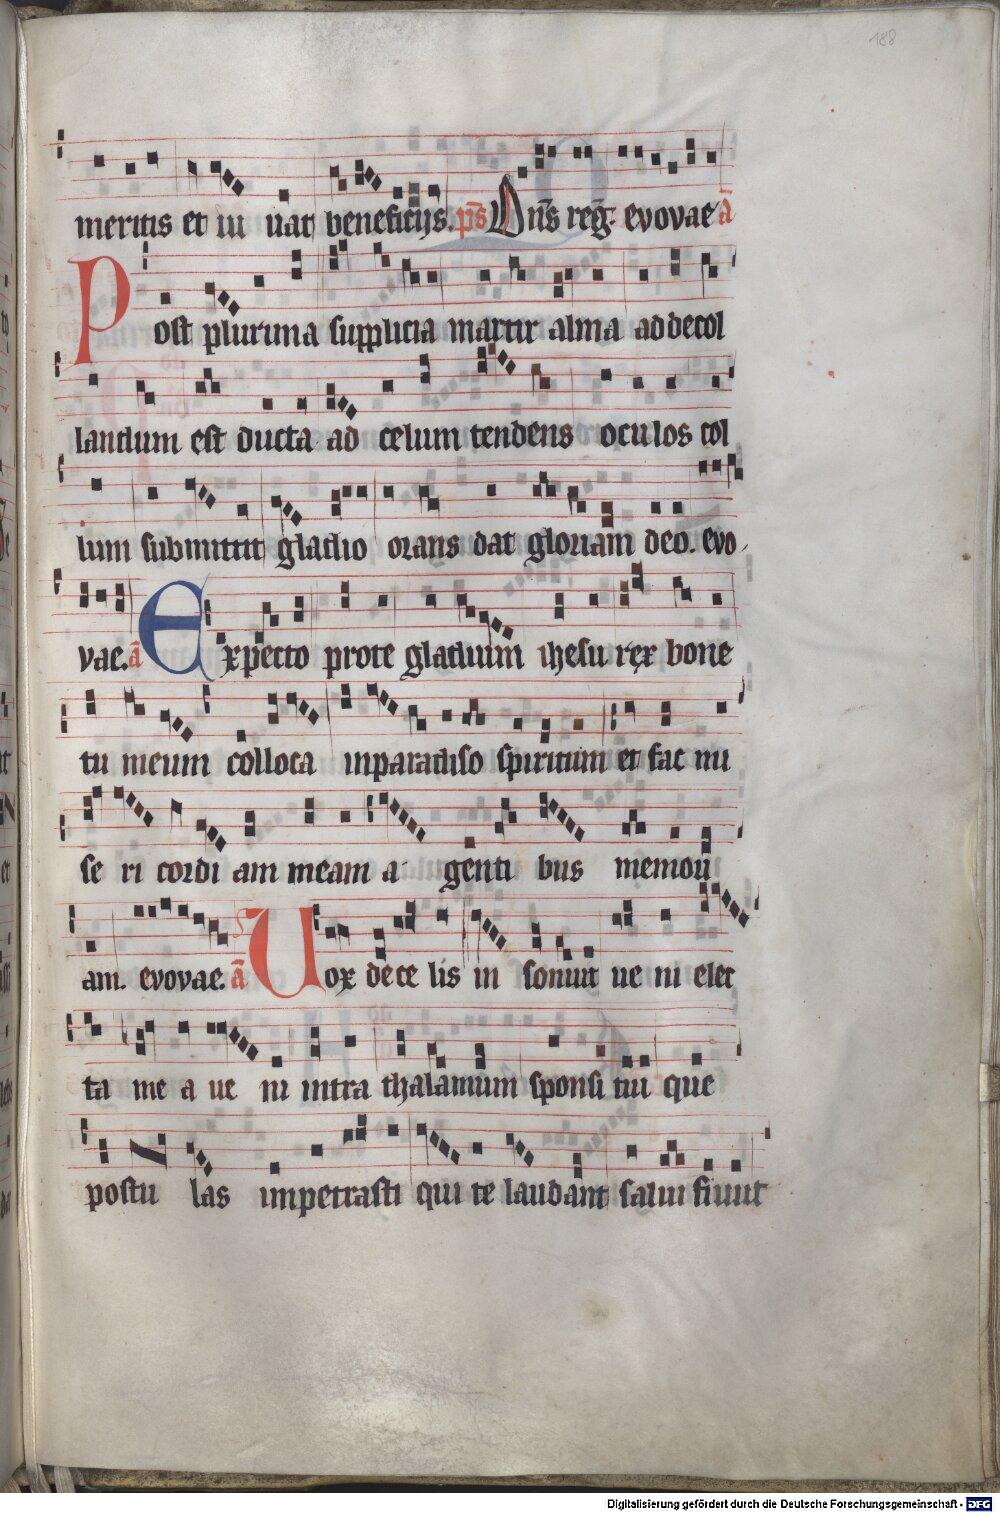 188
meritis et iu uat beneficijs. ps̄ Dn̄s reg̃. evovae ā
Post plurima supplicia martir alma ad decol
landum est ducta ad celum tendens oculos col
lum submittit gladio orans dat gloriam deo. evo
vae. ā Expecto pro te gladium ihesu rex bone
tu meum colloca in paradiso spiritum et fac mi
se ri cordi am meam a genti bus memori
am. evovae. ā Uox de ce lis in sonuit ue ni elec
ta me a ue ni intra thalamum sponsi tui que
postu las impetrasti qui te laudant salui fiunt
Digitalisierung gefördert durch die Deutsche Forschungsgemeinschaft - DFG